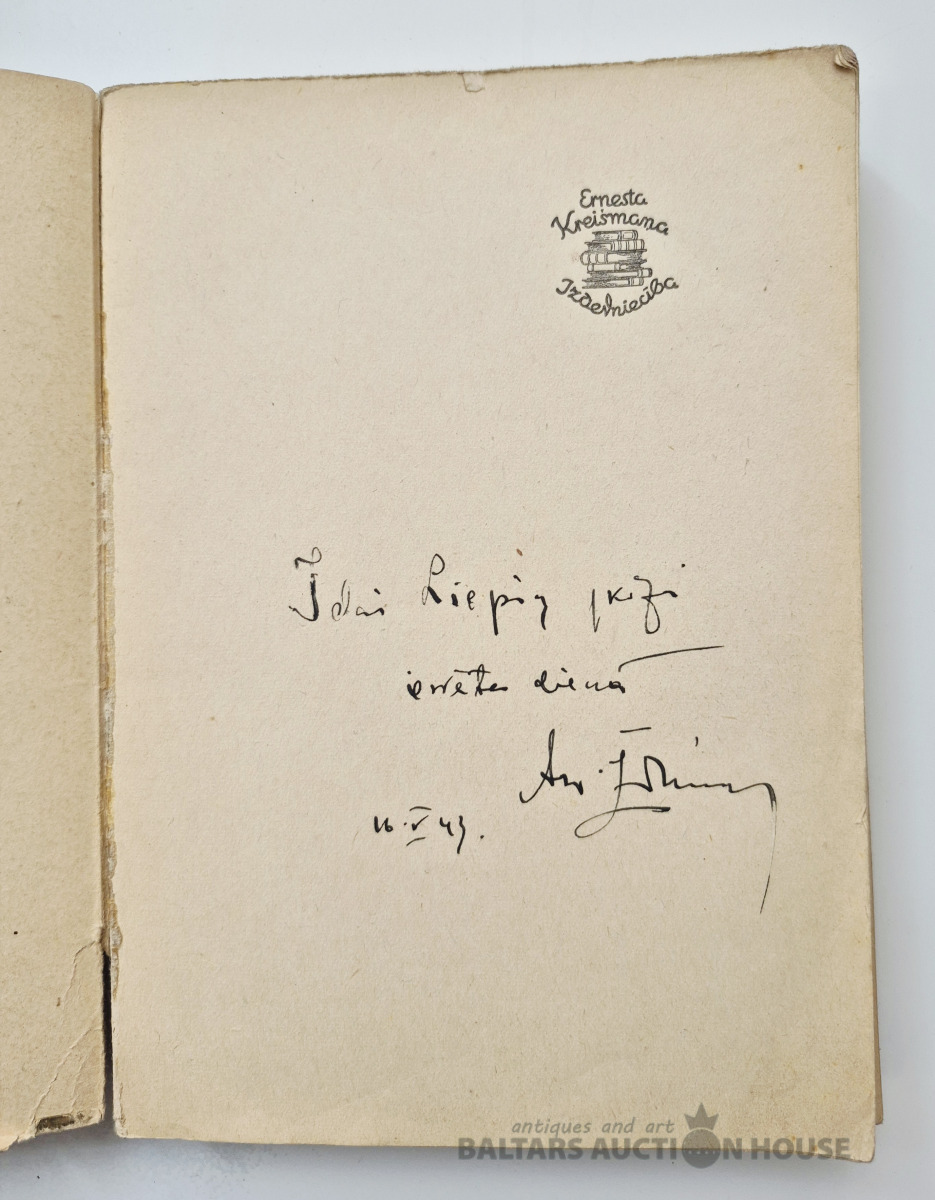 Ernesta
Kreišmana
Izdevniecība
Idai Liepiņ jkdzi
svētes dienā
16.V 43.
antiques and art
BALTARS AUCTION HOUSE